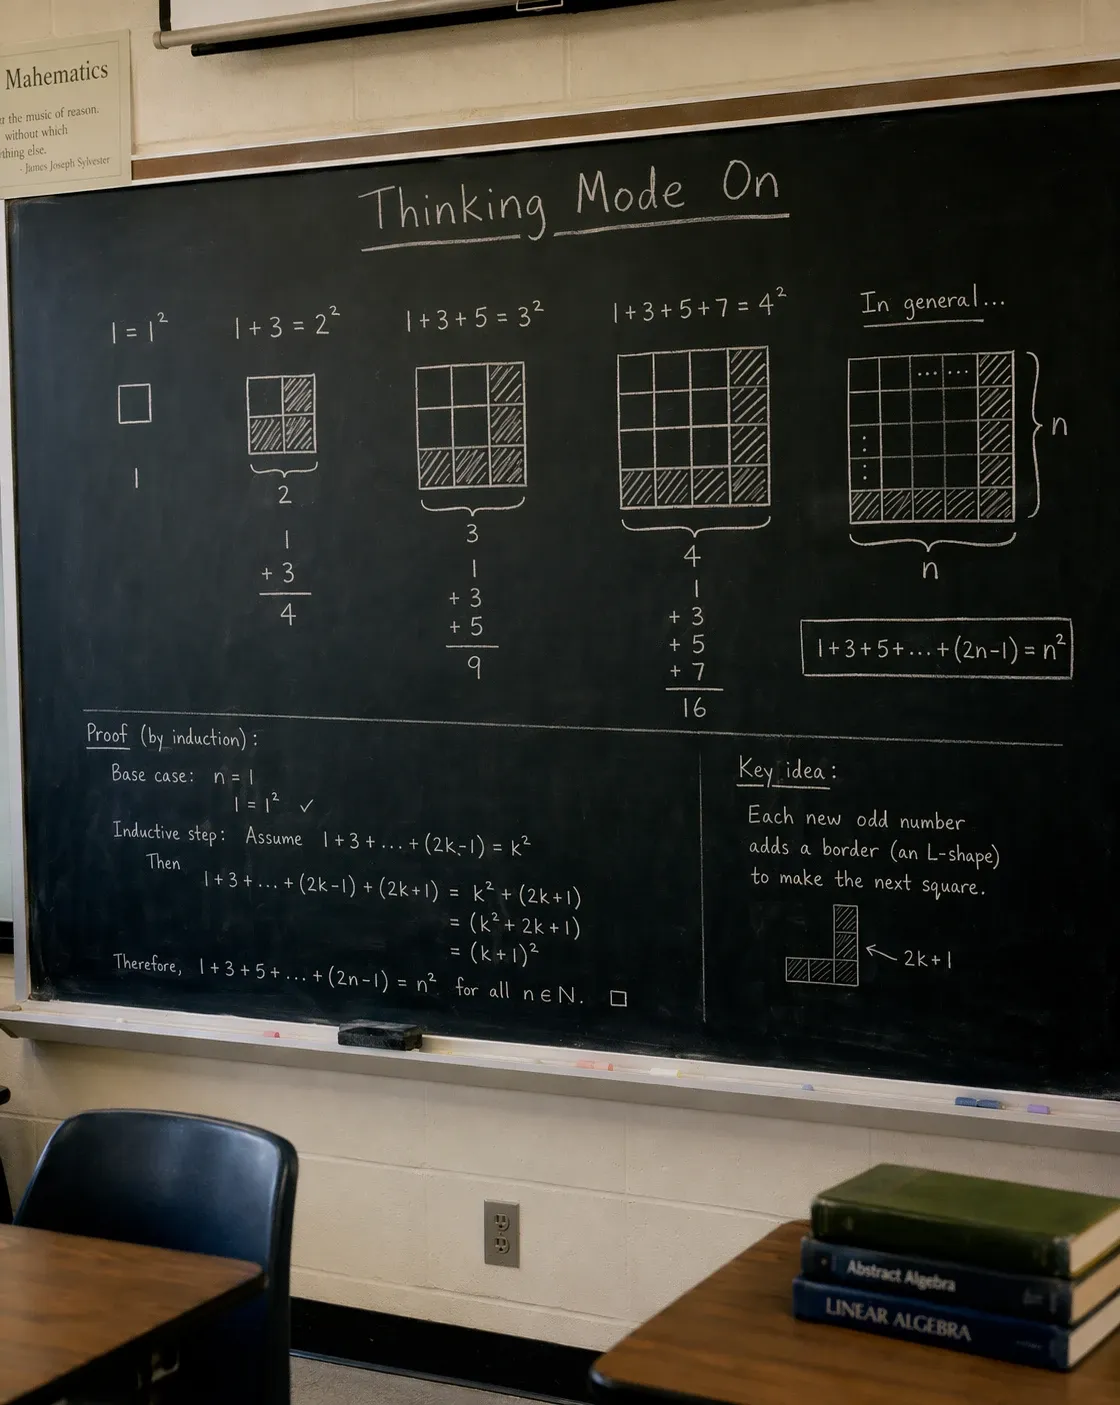 Mahematics
the music of reason.
without which
thing else.
- James Joseph Sylvester
Thinking Mode On
1 = 1²
1
1 + 3 = 2²
2
1
+ 3
4
1 + 3 + 5 = 3²
3
1
+ 3
+ 5
9
1 + 3 + 5 + 7 = 4²
4
1
+ 3
+ 5
+ 7
16
In general...
... ...
n
n
1 + 3 + 5 + ... + (2n-1) = n²
Proof (by induction):
Base case: n = 1
1 = 1² ✓
Inductive step: Assume 1 + 3 + ... + (2k-1) = k²
Then
1 + 3 + ... + (2k-1) + (2k+1) = k² + (2k+1)
= (k² + 2k + 1)
= (k+1)²
Therefore, 1 + 3 + 5 + ... + (2n-1) = n² for all n ∈ N. □
Key idea:
Each new odd number
adds a border (an L-shape)
to make the next square.
2k+1
Abstract Algebra
LINEAR ALGEBRA